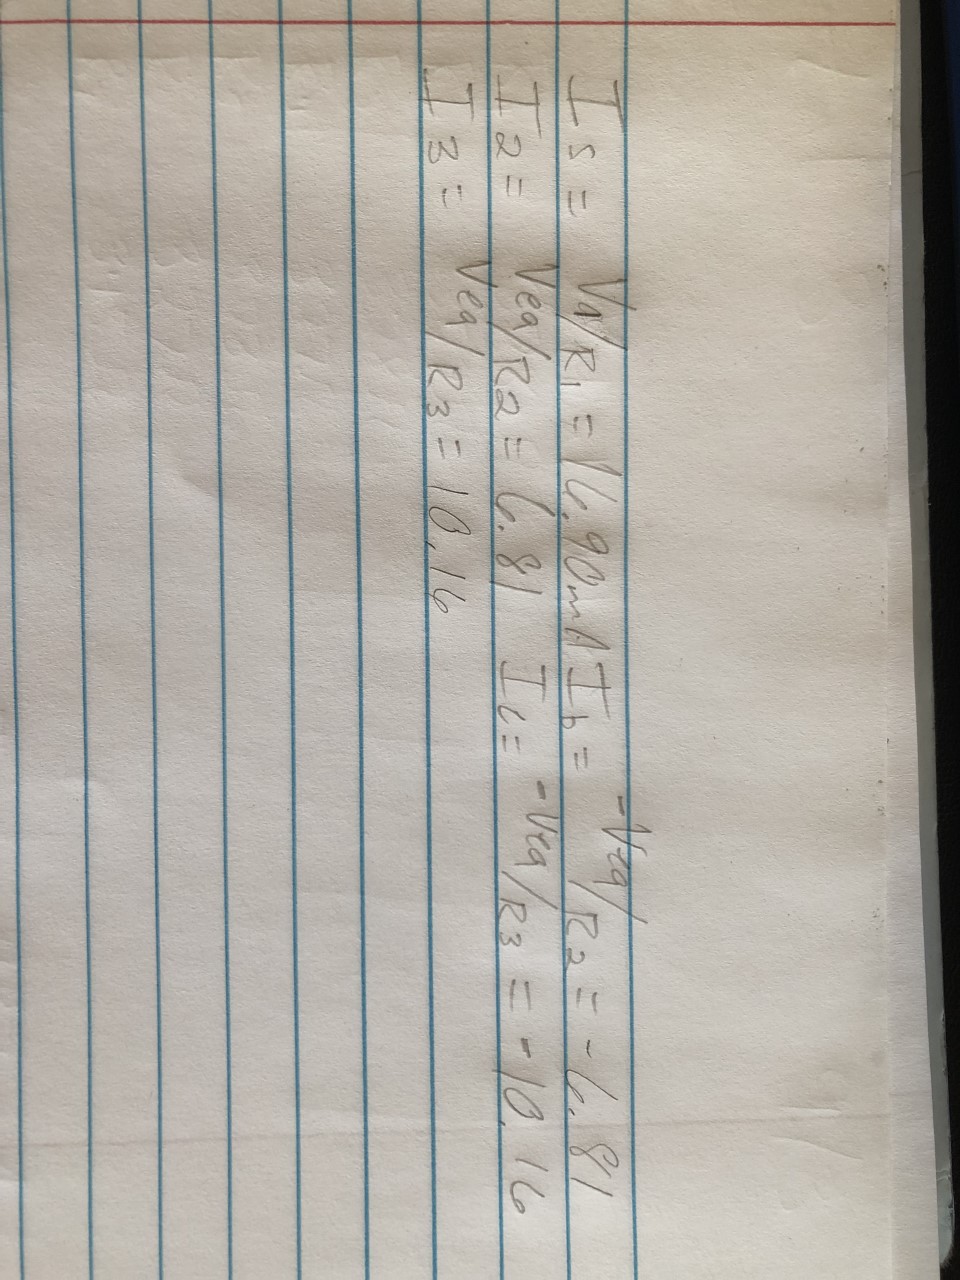 Is = Va/R1 = 16.90mA Ib = -Veq/R2 = -6.81
I2 = Veq/R2 = 6.81 Ic = -Veq/R3 = -10.16
I3 = Veq/R3 = 10.16